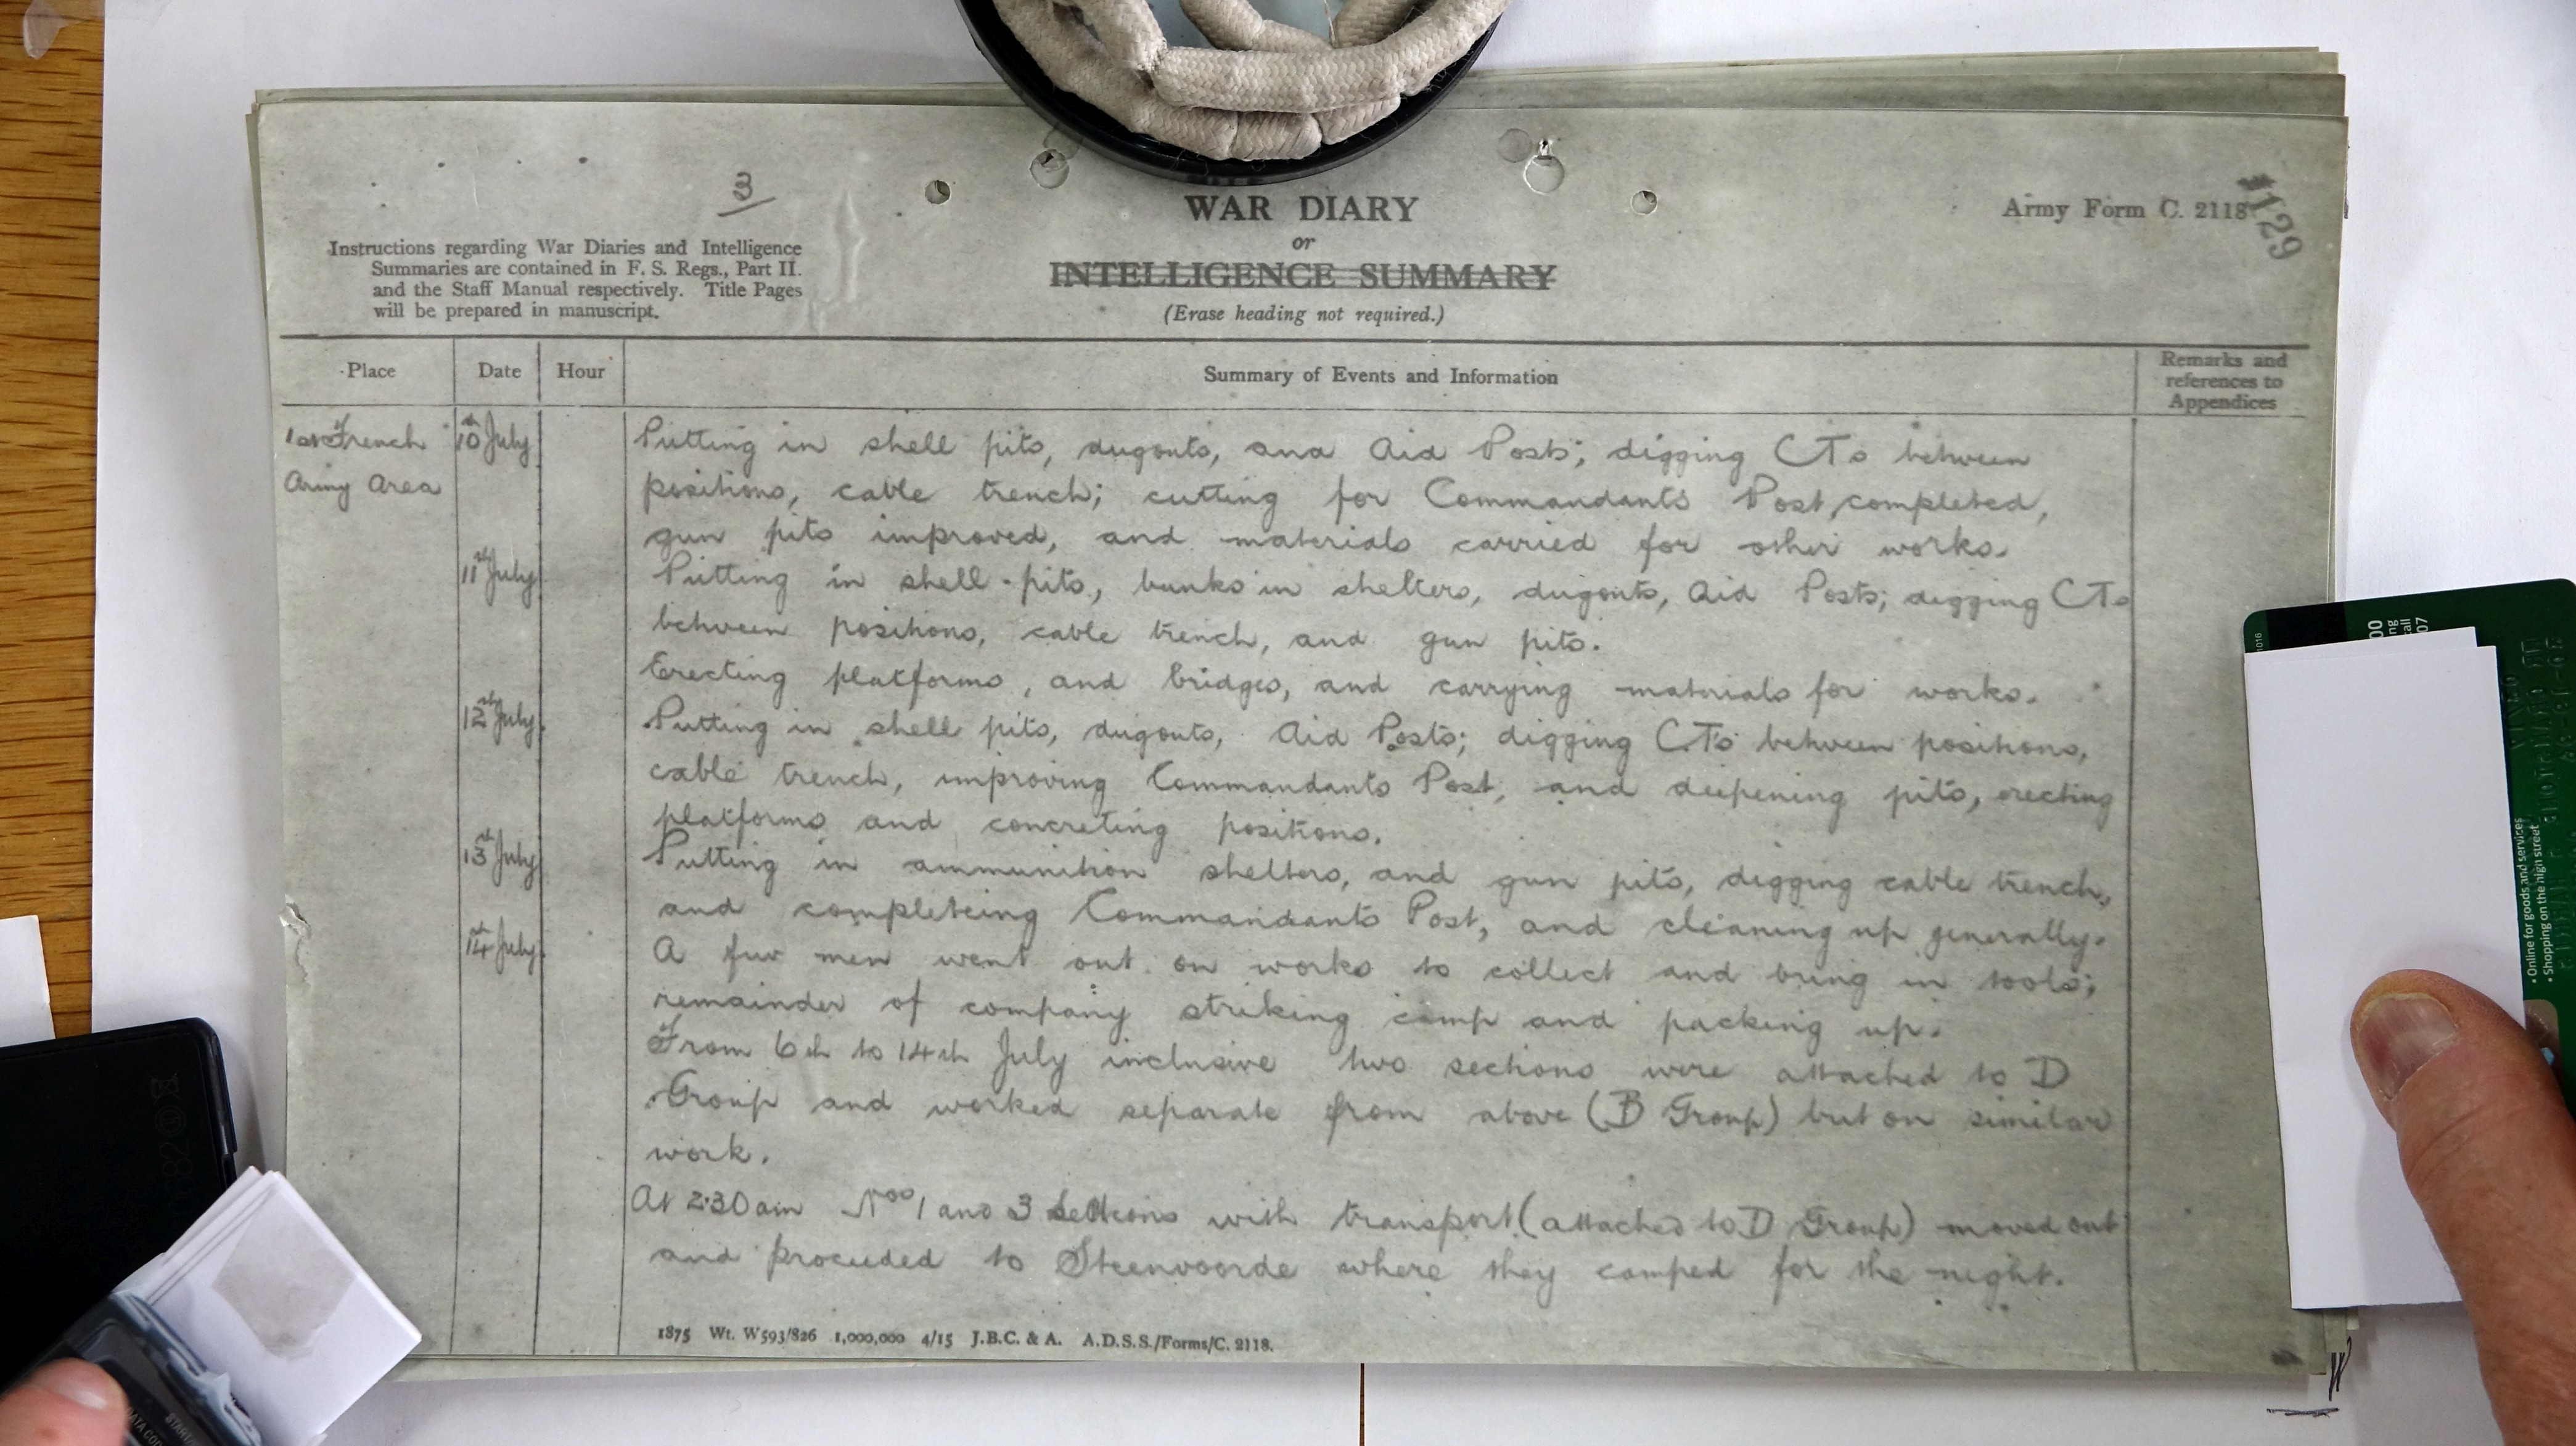 3
WAR DIARY
or
INTELLIGENCE SUMMARY
(Erase heading not required.)
Army Form C. 2118
129
Instructions regarding War Diaries and Intelligence
Summaries are contained in F. S. Regs., Part II.
and the Staff Manual respectively. Title Pages
will be prepared in manuscript.
Place Date Hour Summary of Events and Information Remarks and references to Appendices
1st French
Army Area
10th July Putting in shell pits, dugouts, and Aid Posts; digging CTs between
positions, cable trench; cutting for Commandants Post, completed,
gun pits improved, and materials carried for other works.
11th July Putting in shell-pits, bunks in shelters, dugouts, Aid Posts; digging CTs
between positions, cable trench, and gun pits.
Erecting platforms, and bridges, and carrying materials for works.
12th July Putting in shell pits, dugouts, Aid Posts; digging C.Ts between positions,
cable trench, improving Commandants Post, and deepening pits, erecting
platforms and concreting positions.
13th July Putting in ammunition shelters, and gun pits, digging cable trench,
and completeing Commandants Post, and cleaning up generally.
14th July A few men went out on works to collect and bring in tools;
remainder of company striking camp and packing up.
From 6th to 14th July inclusive two sections were attached to D
Group and worked separate from above (B Group) but on similar
work.
At 2.30am Nos 1 and 3 Sections with transport (attached to D Group) moved out
and proceeded to Steenvoorde where they camped for the night.
1875 Wt. W593/826 1,000,000 4/15 J.B.C. & A. A.D.S.S./Forms/C. 2118.
• Online for goods and services
• Shopping on the high street